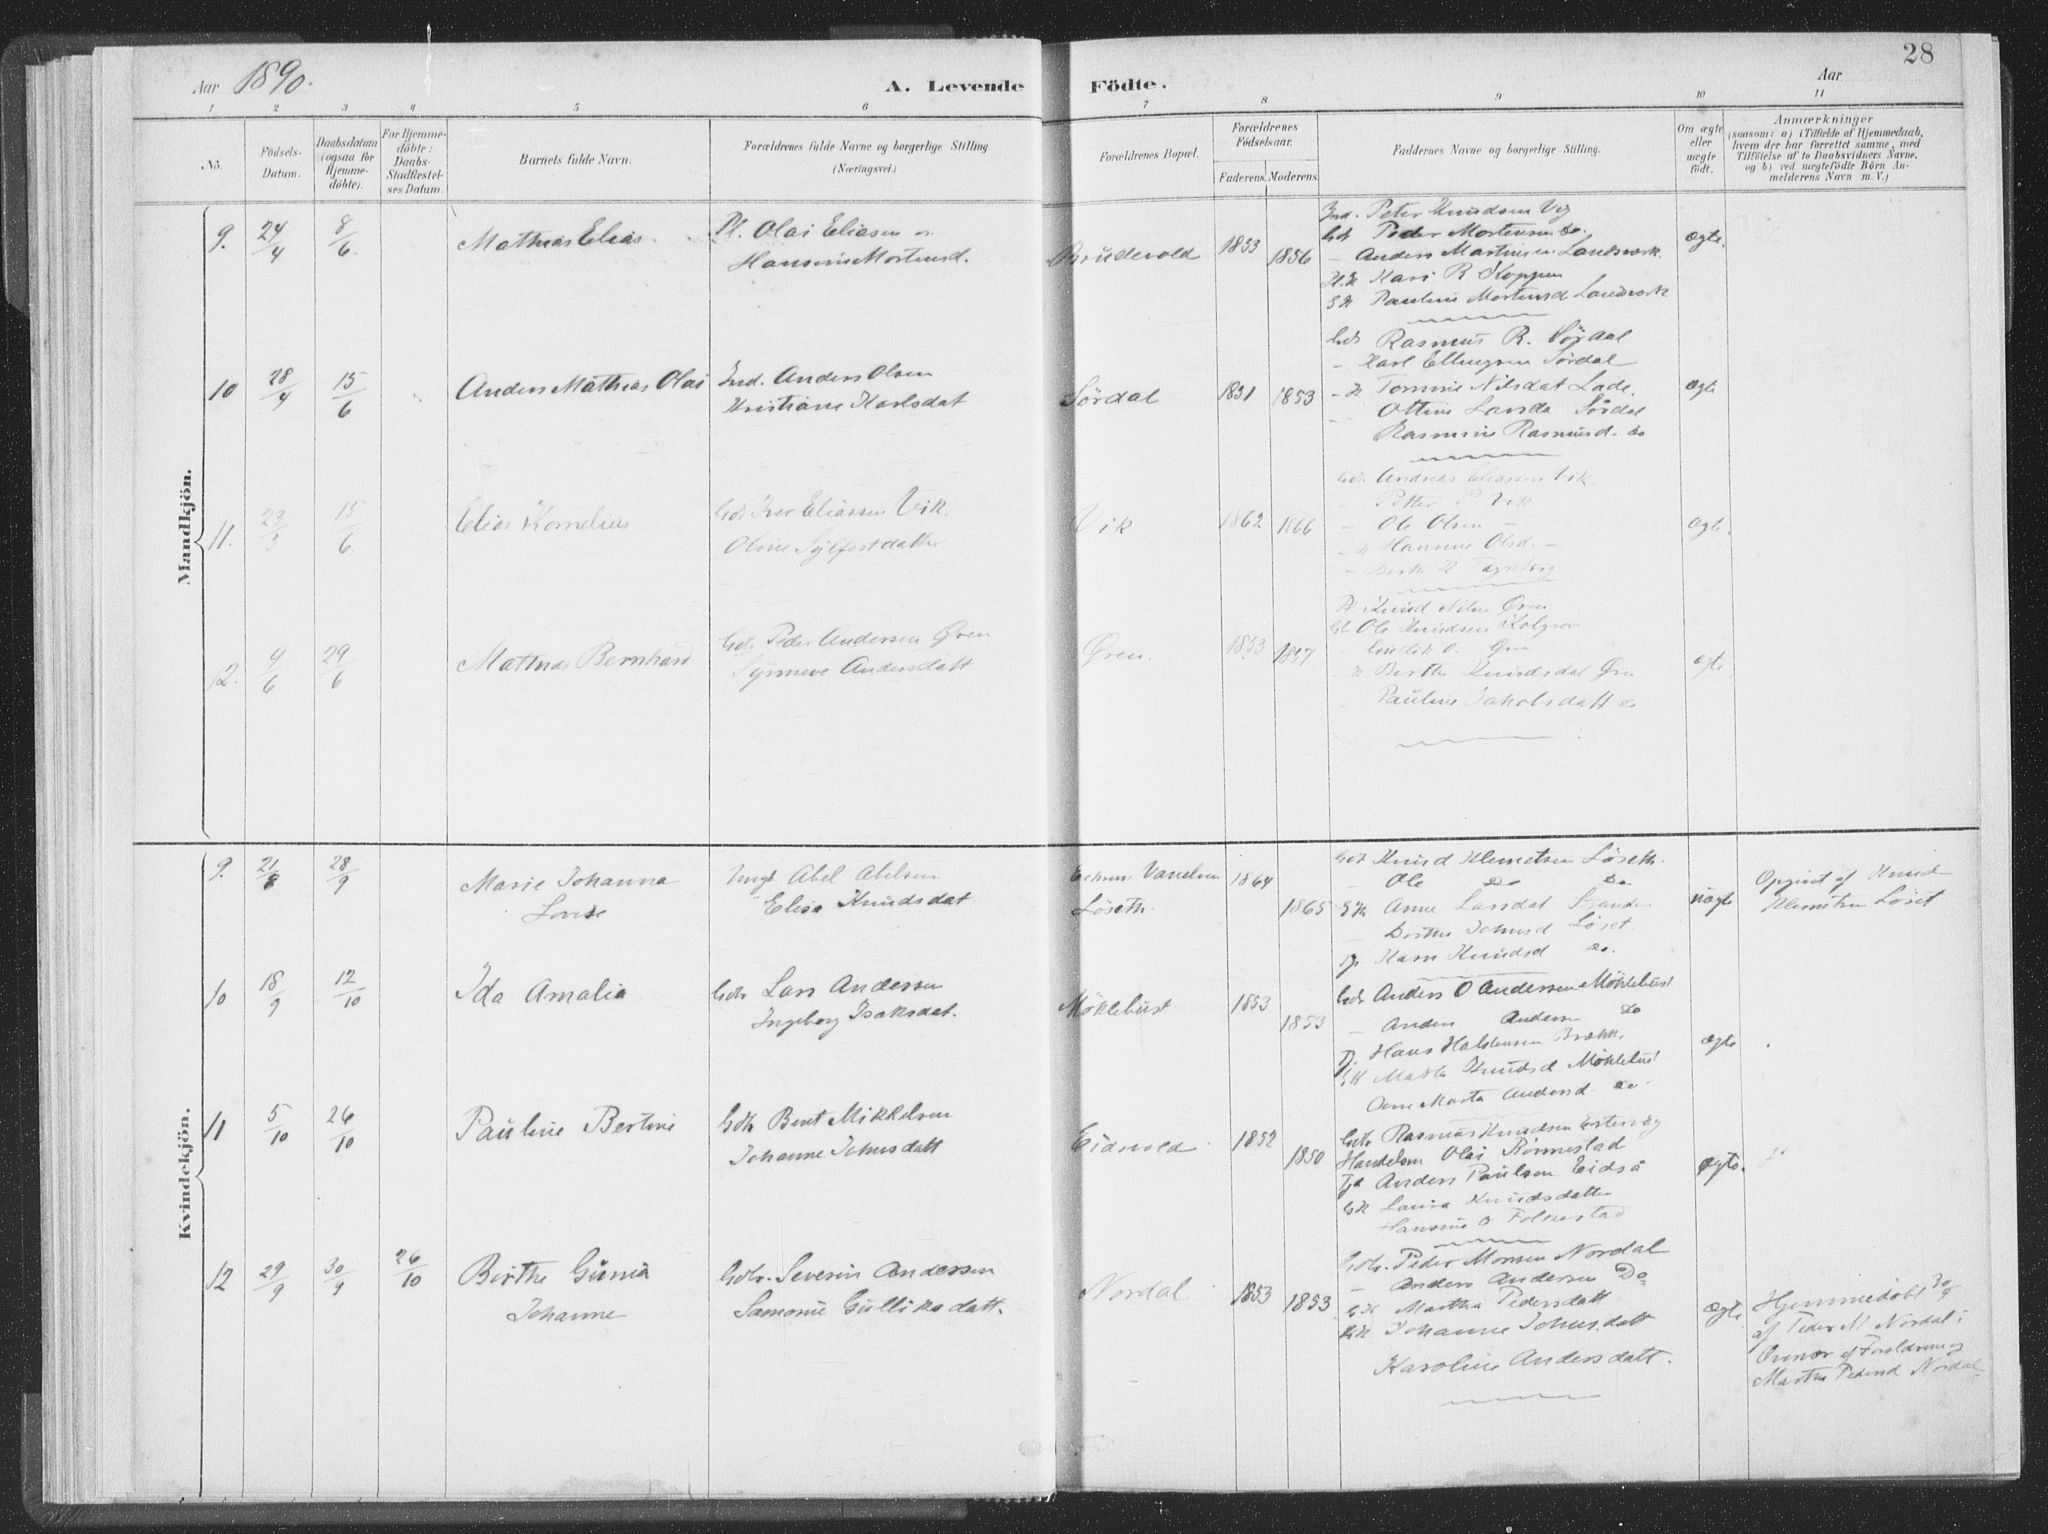 28
Aar 1890.
A. Levende Födte.
Aar
1 2 3 4 5 6 7 8 9 10 11
No.
Födsels-Datum.
Daabsdatum (ogsaa for Hjemmedöbte).
For Hjemmedöbte: Daabs-Stadfæstelses Datum.
Barnets fulde Navn.
Forældrenes fulde Navne og borgerlige Stilling (Næringsvei.)
Forældrenes Bopæl.
Forældrenes Födselsaar.
Faderens. Moderens.
Faddernes Navne og borgerlige Stilling.
Om ægte eller uægte födt.
Anmærkninger
(saasom: a) i Tilfælde af Hjemmedaab, hvem der har forrettet samme, med Tilföielse af to Daabsvidners Navne, og b) ved uægtefödte Börn Anmelderens Navn m. V.)
Mandkjön.
9. 24/4 8/6. Mathias Elias Pl. Olai Eliasen
Mortensd. Brudevold 1853 1856 ægte.
Ind. Peter Knudsen Vig
Peder Mortensen do.
Anders Martinsen Landverk.
Kari R Koppen
Pauline Mortensd Landverk
10 28/4 15/6 Anders Mathias Olai Ind. Anders Olsen
Kristiane Karlsdat Sørdal 1851 1853 ægte
Rasmus R. Sørdal
Karl Ellingsen Sørdal
Nilsdat Lade.
Sørdal
Rasmine Rasmusd. do
11. 29/5 15/6. Elias Kornelius Iver Eliassen Vik.
Oline Sylfestdatter Vik 1862 1866 ægte.
Andreas Eliasen Vik
Petter Vik
Ole Olsen –
Hansine Olsd. –
12. 9/6 29/6 Mathias Bernhard Peder Andersen Øren
Synneve Andersdatt Øren. 1853 1857 ægte
Knud Nilsen Øren
Ole Knudsen
Berthe Knudsdat Øren
Pauline Jakobsdatt do
Kvindekjön.
9. 21/8 28/9 Marie Johanna
Lovise Ungk Abel Abelsen
Elisa Knudsdat Vanelven
Løseth. 1864 1865 uægte
Knud Klemetsen Løseth.
Ole Do Do
Anne Larsdat
Dorthe Johnsd Løset.
Karn Knudsd do.
Opgivet af Knud
Klemetsen Løset
10 18/9 12/10 Ida Amalia Gdb Lars Andersen
Ingeborg Isaksdat. Möklebust 1853 1853 ægte
Gdb Anders O Andersen Möklebust
Anders Andersen Do
Hans Halstensen
Knudsd Möklebust
Ane Marta Andersd do
11 5/10 26/10 Pauline Bertine Gdb Bent Mikkelsen
Johanne Johnsdatt Eidsvold 1852 1850 ægte.
Gdb Rasmus Knudsen
Handelsm Olai Rönnestad
Anders Paulsen Eidså
Laura Knudsdatter
Hansine O Folkestad
12 29/9 30/9 26/10 Birthe Gunia
Johanne Gdb. Severin Andersen
Samonie Gulliksdatt. Nordal 1853 1853 ægte
Gdb. Peder Monsen Nordal
Anders Andersen Do
Martha Pedersdatt
Johanne Johnsdatt
Karoline Andersdatt.
Hjemmedöbt 30/9
af Peder M Nordal i
Nærvær af Forældrene og
Martha Pedersd Nordal